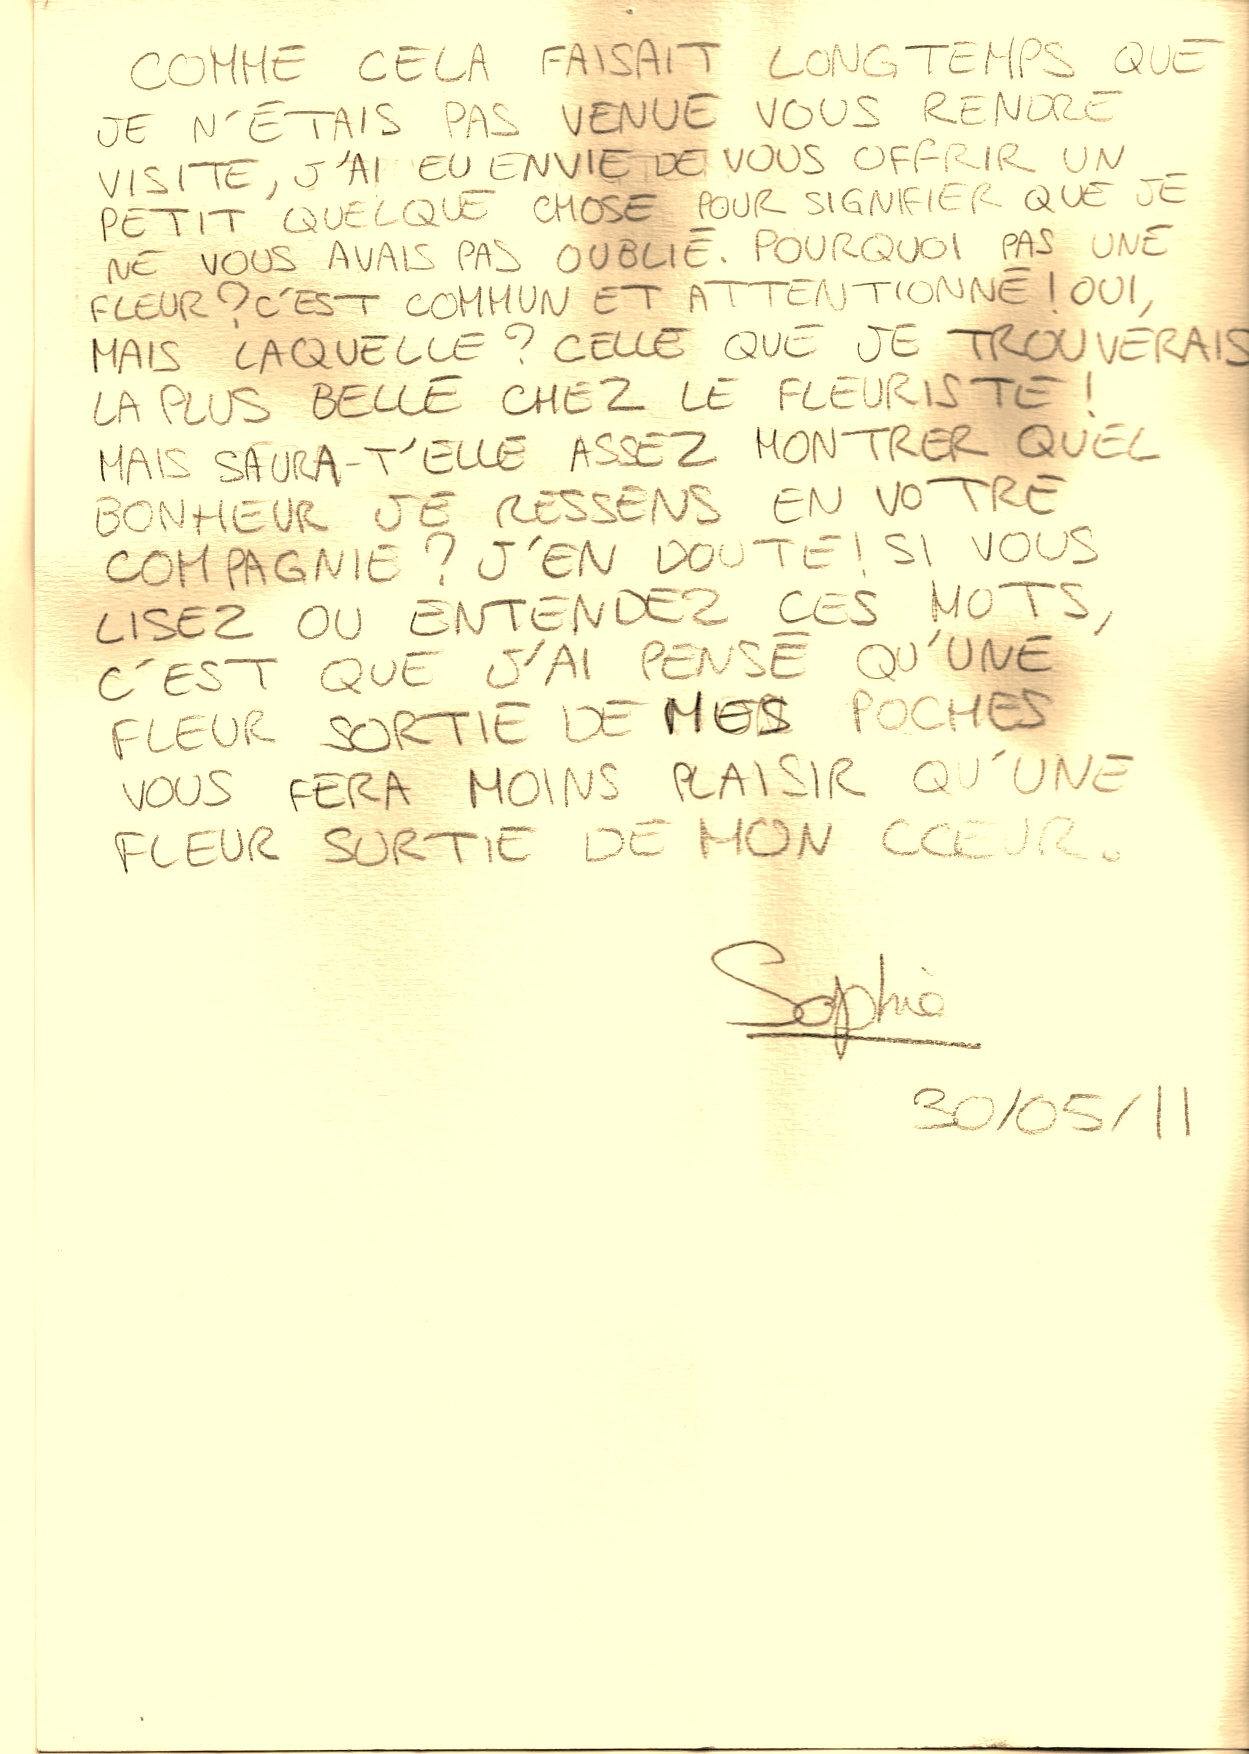 COMME CELA FAISAIT LONGTEMPS QUE
JE N'ÉTAIS PAS VENUE VOUS RENDRE
VISITE, J'AI EU ENVIE DE VOUS OFFRIR UN
PETIT QUELQUE CHOSE POUR SIGNIFIER QUE JE
NE VOUS AVAIS PAS OUBLIÉ. POURQUOI PAS UNE
FLEUR ? C'EST COMMUN ET ATTENTIONNÉ ! OUI,
MAIS LAQUELLE ? CELLE QUE JE TROUVERAIS
LA PLUS BELLE CHEZ LE FLEURISTE !
MAIS SAURA-T'ELLE ASSEZ MONTRER QUEL
BONHEUR JE RESSENS EN VOTRE
COMPAGNIE ? J'EN DOUTE ! SI VOUS
LISEZ OU ENTENDEZ CES MOTS,
C'EST QUE J'AI PENSÉ QU'UNE
FLEUR SORTIE DE MES POCHES
VOUS FERA MOINS PLAISIR QU'UNE
FLEUR SORTIE DE MON CŒUR.
Sophie
30/05/11